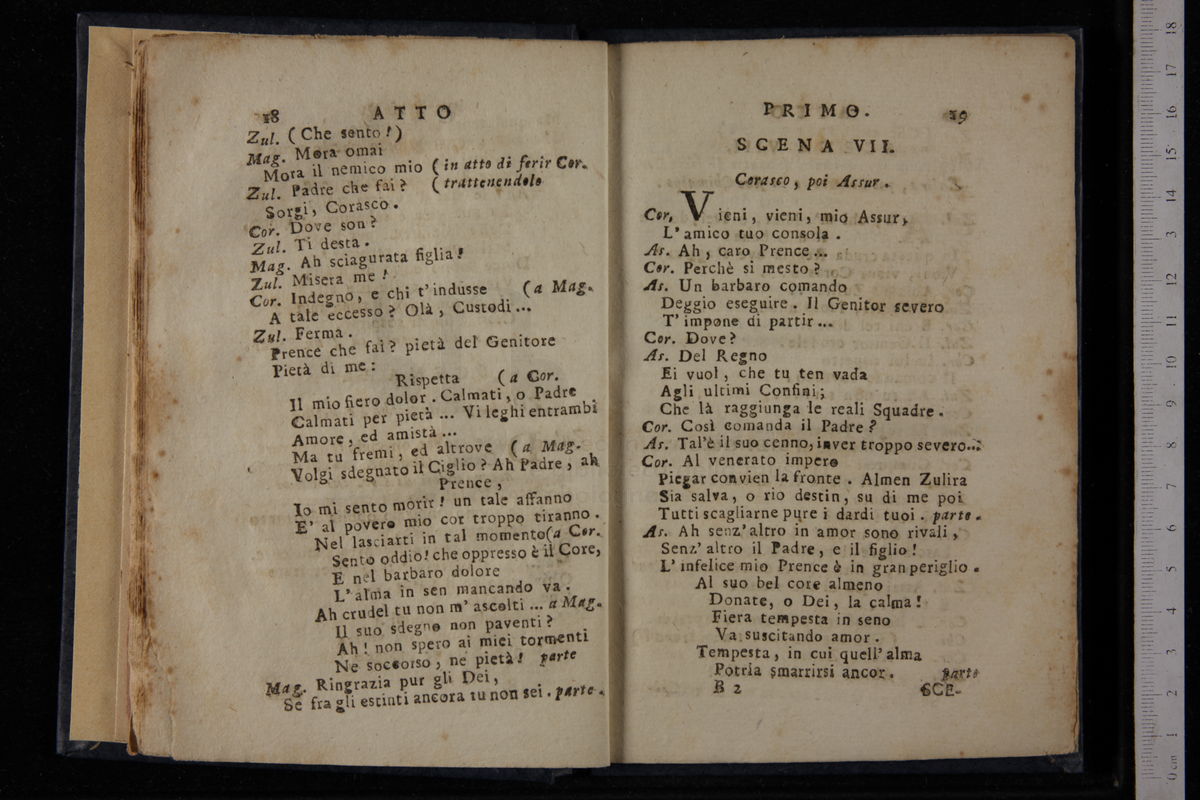 18 ATTO
Zul. (Che sento!)
Mag. Mora omai
Mora il nemico mio (in atto di ferir Cor.
Zul. Padre che fai? (trattenendolo
Sorgi, Corasco.
Cor. Dove son?
Zul. Ti desta.
Mag. Ah sciagurata figlia!
Zul. Misera me!
Cor. Indegno, e chi t'indusse (a Mag.
A tale eccesso? Olà, Custodi...
Zul. Ferma.
Prence che fai? pietà del Genitore
Pietà di me:
Rispetta (a Cor.
Il mio fiero dolor. Calmati, o Padre
Calmati per pietà... Vi leghi entrambi
Amore, ed amistà...
Ma tu fremi, ed altrove (a Mag.
Volgi sdegnato il Ciglio? Ah Padre, ah
Prence,
Io mi sento morir! un tale affanno
E' al povero mio cor troppo tiranno.
Nel lasciarti in tal momento (a Cor.
Sento oddio! che oppresso è il Core,
E nel barbaro dolore
L'alma in sen mancando va.
Ah crudel tu non m'ascolti... a Mag.
Il suo sdegno non paventi?
Ah! non spero ai miei tormenti
Ne soccorso, ne pietà! parte
Mag. Ringrazia pur gli Dei,
Se fra gli estinti ancora tu non sei. parte.
PRIMO. 19
SCENA VII.
Corasco, poi Assur.
Cor. Vieni, vieni, mio Assur,
L'amico tuo consola.
As. Ah, caro Prence...
Cor. Perchè si mesto?
As. Un barbaro comando
Deggio eseguire. Il Genitor severo
T'impone di partir...
Cor. Dove?
As. Del Regno
Ei vuol, che tu ten vada
Agli ultimi Confini;
Che là raggiunga le reali Squadre.
Cor. Così comanda il Padre?
As. Tal'è il suo cenno, inver troppo severo...
Cor. Al venerato impero
Piegar convien la fronte. Almen Zulira
Sia salva, o rio destin, su di me poi
Tutti scagliarne pure i dardi tuoi. parte.
As. Ah senz'altro in amor sono rivali,
Senz'altro il Padre, e il figlio!
L'infelice mio Prence è in gran periglio.
Al suo bel core almeno
Donate, o Dei, la calma!
Fiera tempesta in seno
Va suscitando amor.
Tempesta, in cui quell'alma
Potria smarrirsi ancor. parte
B 2 SCE-
18
17
16
15
14
13
12
11
10
9
8
7
6
5
4
3
2
1
0 cm